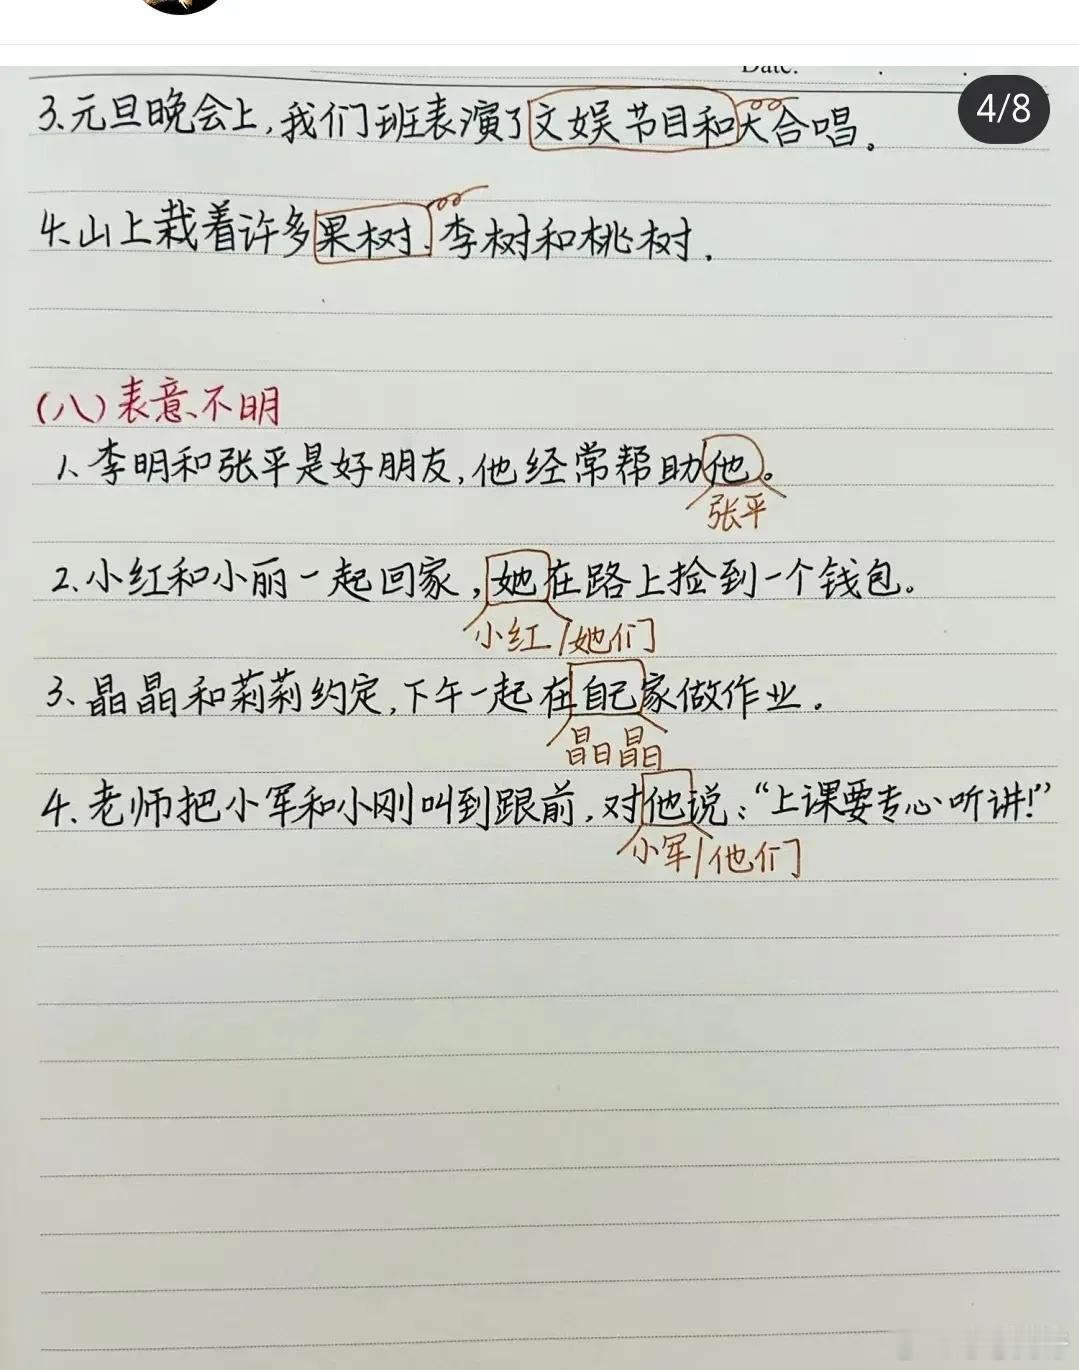 Date:
4/8
3、元旦晚会上，我们班表演了文娱节目和大合唱。
4、山上栽着许多果树、李树和桃树．
（八）表意不明
1、李明和张平是好朋友，他经常帮助他。
张平
2、小红和小丽一起回家，她在路上捡到一个钱包。
小红/她们
3、晶晶和莉莉约定，下午一起在自己家做作业．
晶晶
4、老师把小军和小刚叫到跟前，对他说：“上课要专心听讲！”
小军/他们